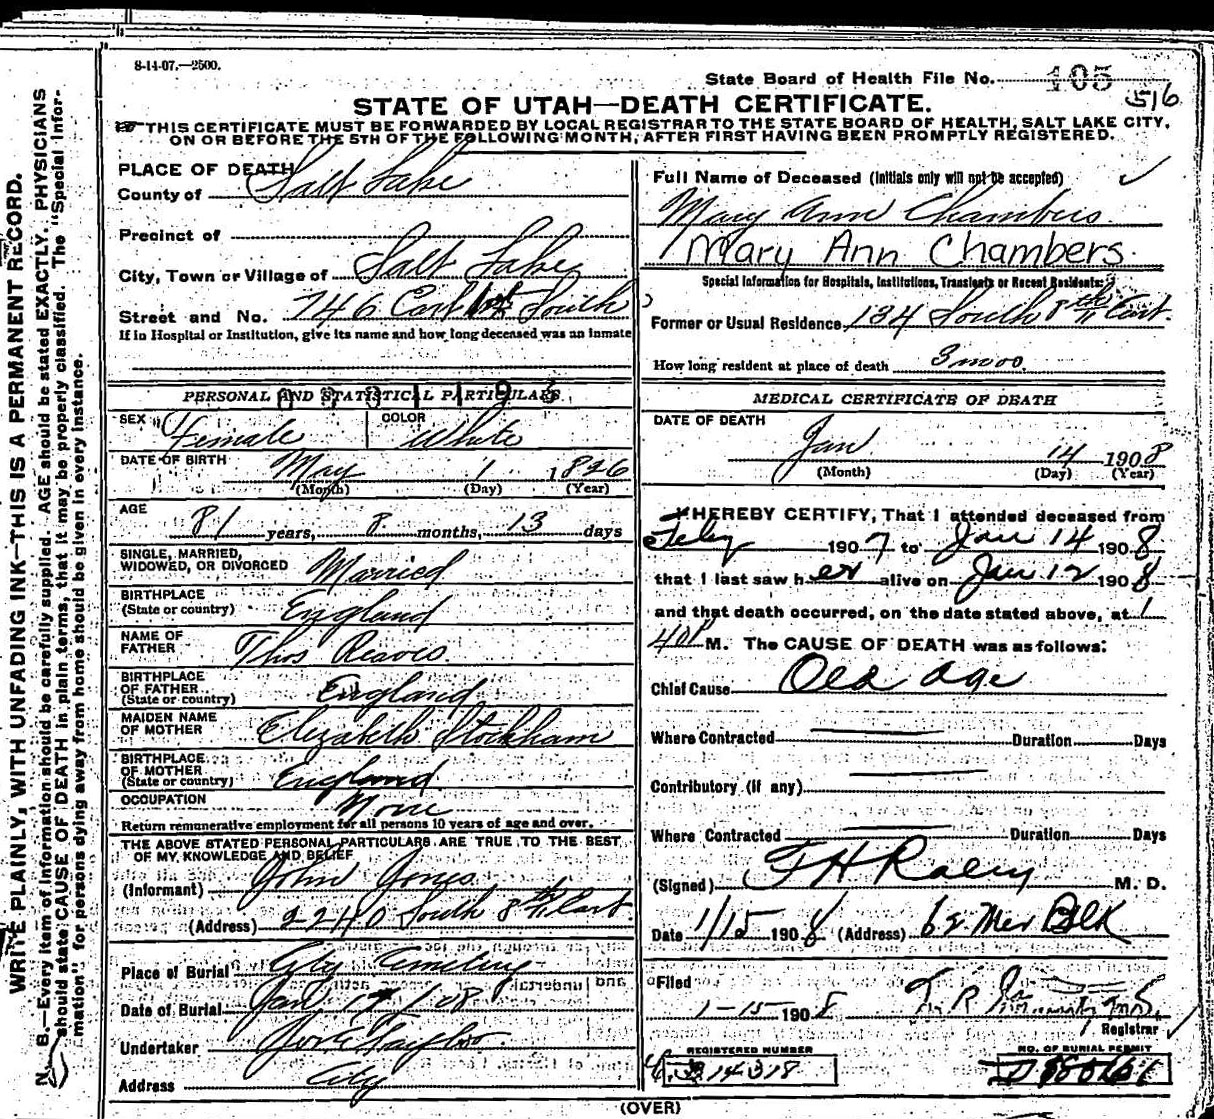 8-14-07.—2500.
State Board of Health File No. 105
516
STATE OF UTAH—DEATH CERTIFICATE.
THIS CERTIFICATE MUST BE FORWARDED BY LOCAL REGISTRAR TO THE STATE BOARD OF HEALTH, SALT LAKE CITY,
ON OR BEFORE THE 5TH OF THE FOLLOWING MONTH, AFTER FIRST HAVING BEEN PROMPTLY REGISTERED.
WRITE PLAINLY, WITH UNFADING INK—THIS IS A PERMANENT RECORD.
N. B.—Every item of information should be carefully supplied. AGE should be stated EXACTLY. PHYSICIANS
should state CAUSE OF DEATH in plain terms, that it may be properly classified. The "Special Infor-
mation" for persons dying away from home should be given in every instance.
PLACE OF DEATH
County of Salt Lake
Precinct of
City, Town or Village of Salt Lake
Street and No. 746 East 1st South
If in Hospital or Institution, give its name and how long deceased was an inmate
PERSONAL AND STATISTICAL PARTICULARS
SEX Female COLOR White
DATE OF BIRTH May 1 1826
(Month) (Day) (Year)
AGE
81 years, 8 months, 13 days
SINGLE, MARRIED,
WIDOWED, OR DIVORCED Married
BIRTHPLACE
(State or country) England
NAME OF
FATHER Thos Reaves
BIRTHPLACE
OF FATHER
(State or country) England
MAIDEN NAME
OF MOTHER Elizabeth Stockham
BIRTHPLACE
OF MOTHER
(State or country) England
OCCUPATION None
Return remunerative employment for all persons 10 years of age and over.
THE ABOVE STATED PERSONAL PARTICULARS ARE TRUE TO THE BEST
OF MY KNOWLEDGE AND BELIEF
(Informant) John Jones
(Address) 2240 South 8th East
Place of Burial City Cemetery
Date of Burial Jan 17/08
Undertaker Jos E Taylor
Address City
Full Name of Deceased (Initials only will not be accepted)
Mary Ann Chambers
Mary Ann Chambers
Special Information for Hospitals, Institutions, Transients or Recent Residents:
Former or Usual Residence 134 South 8th East.
How long resident at place of death 3 mos.
MEDICAL CERTIFICATE OF DEATH
DATE OF DEATH
Jan 14 1908
(Month) (Day) (Year)
I HEREBY CERTIFY, That I attended deceased from
Feby 1907 to Jan 14 1908
that I last saw her alive on Jan 12 1908
and that death occurred, on the date stated above, at 1
40 P M. The CAUSE OF DEATH was as follows:
Chief Cause Old age
Where Contracted Duration Days
Contributory (if any)
Where Contracted Duration Days
(Signed) M. D.
Date 1/15 1908 (Address)
Filed
1-15-1908
Registrar
REGISTERED NUMBER
NO. OF BURIAL PERMIT
(OVER)